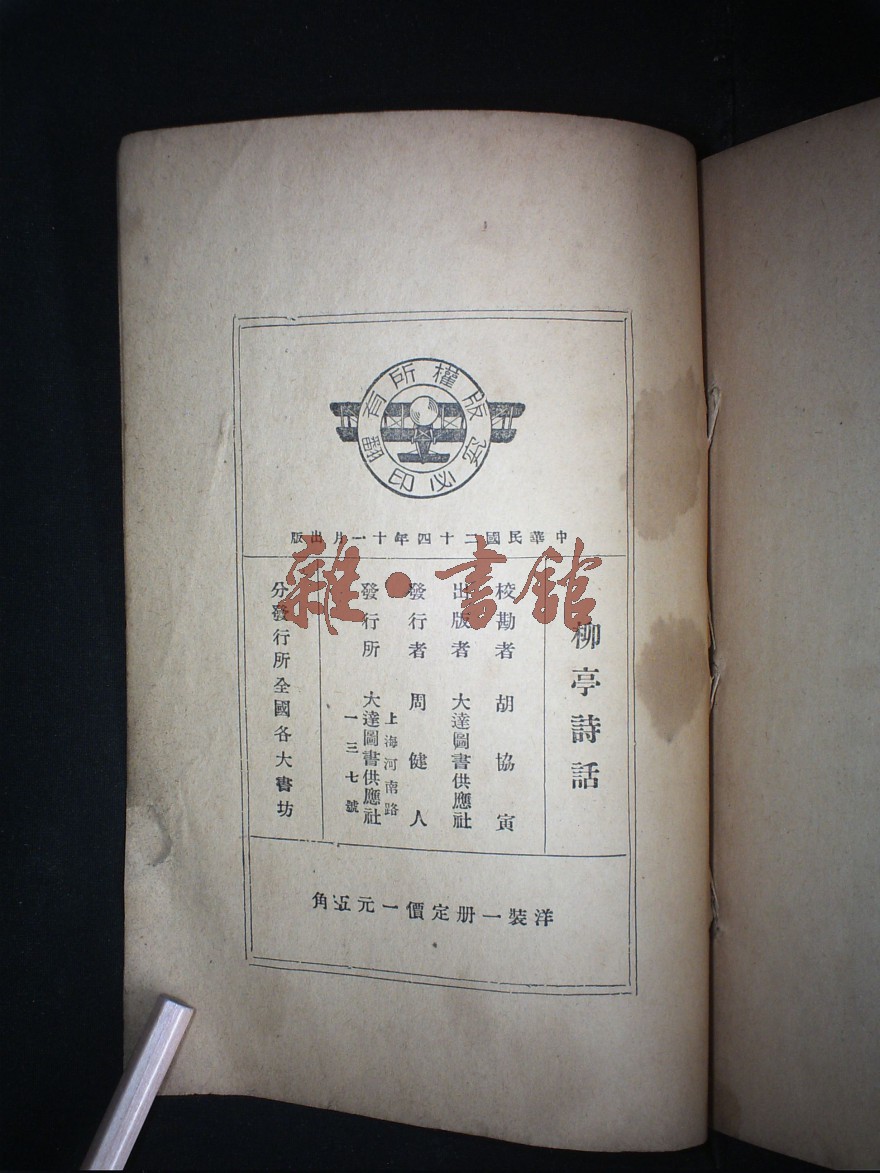 版權所有
翻印必究
中華民國二十四年十一月出版
雜·書館
柳亭詩話
校勘者 胡協寅
出版者 大達圖書供應社
發行者 周健人
發行所 大達圖書供應社
上海河南路
一三七號
分發行所全國各大書坊
洋裝一册定價一元五角